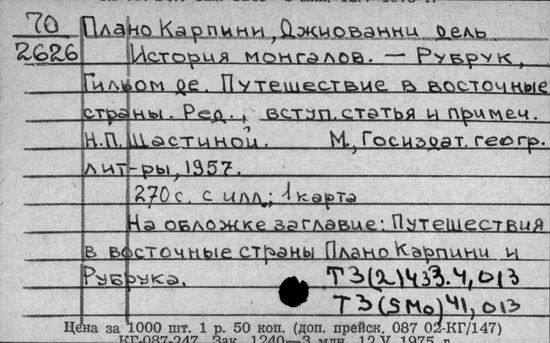 70
2626
Плано Карпини, Джиованни дель.
История монгалов. — Рубрук,
Гильом де. Путешествие в восточные
страны. Ред., вступ. статья и примеч.
Н.П. Шастиной. М., Госиздат. геогр.
лит-ры, 1957.
270 с. с илл.; 1 карта
На обложке заглавие: Путешествия
в восточные страны Плано Карпини и
Рубрука.
ТЗ(2)433.4,013
ТЗ(5Мо)41,013
Цена за 1000 шт. 1 р. 50 коп. (доп. прейск. 087 02-КГ/147)
КГ-087-247. Зак. 1240—3 млн. 12.V 1975 г.